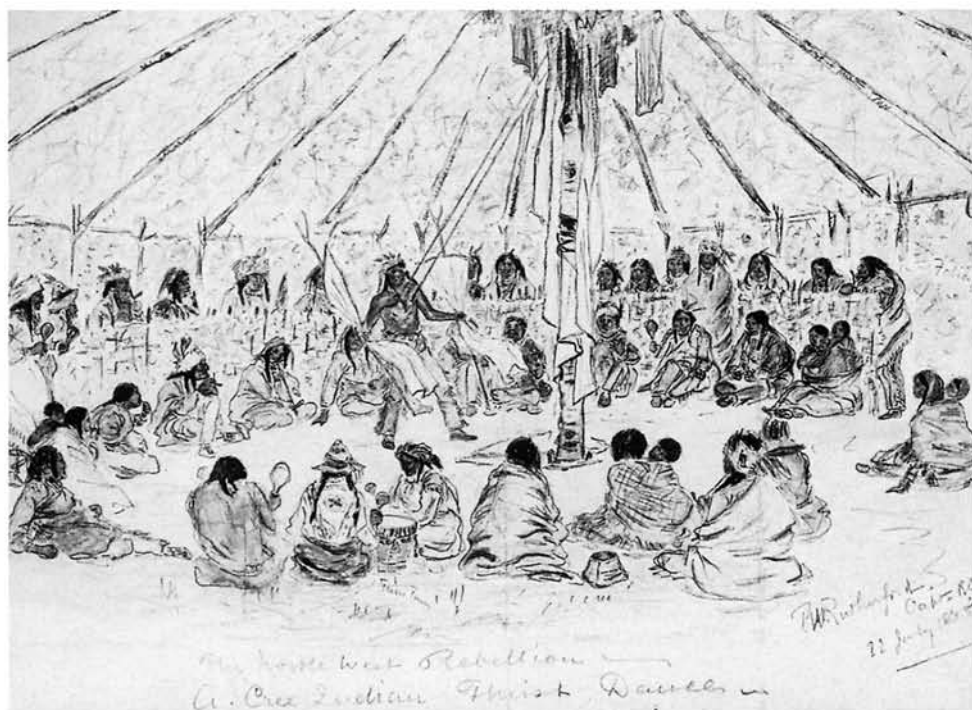 R W Rutherford
Capt.
22 July 1885
The North West Rebellion
A. Cree Indian Thirst Dance